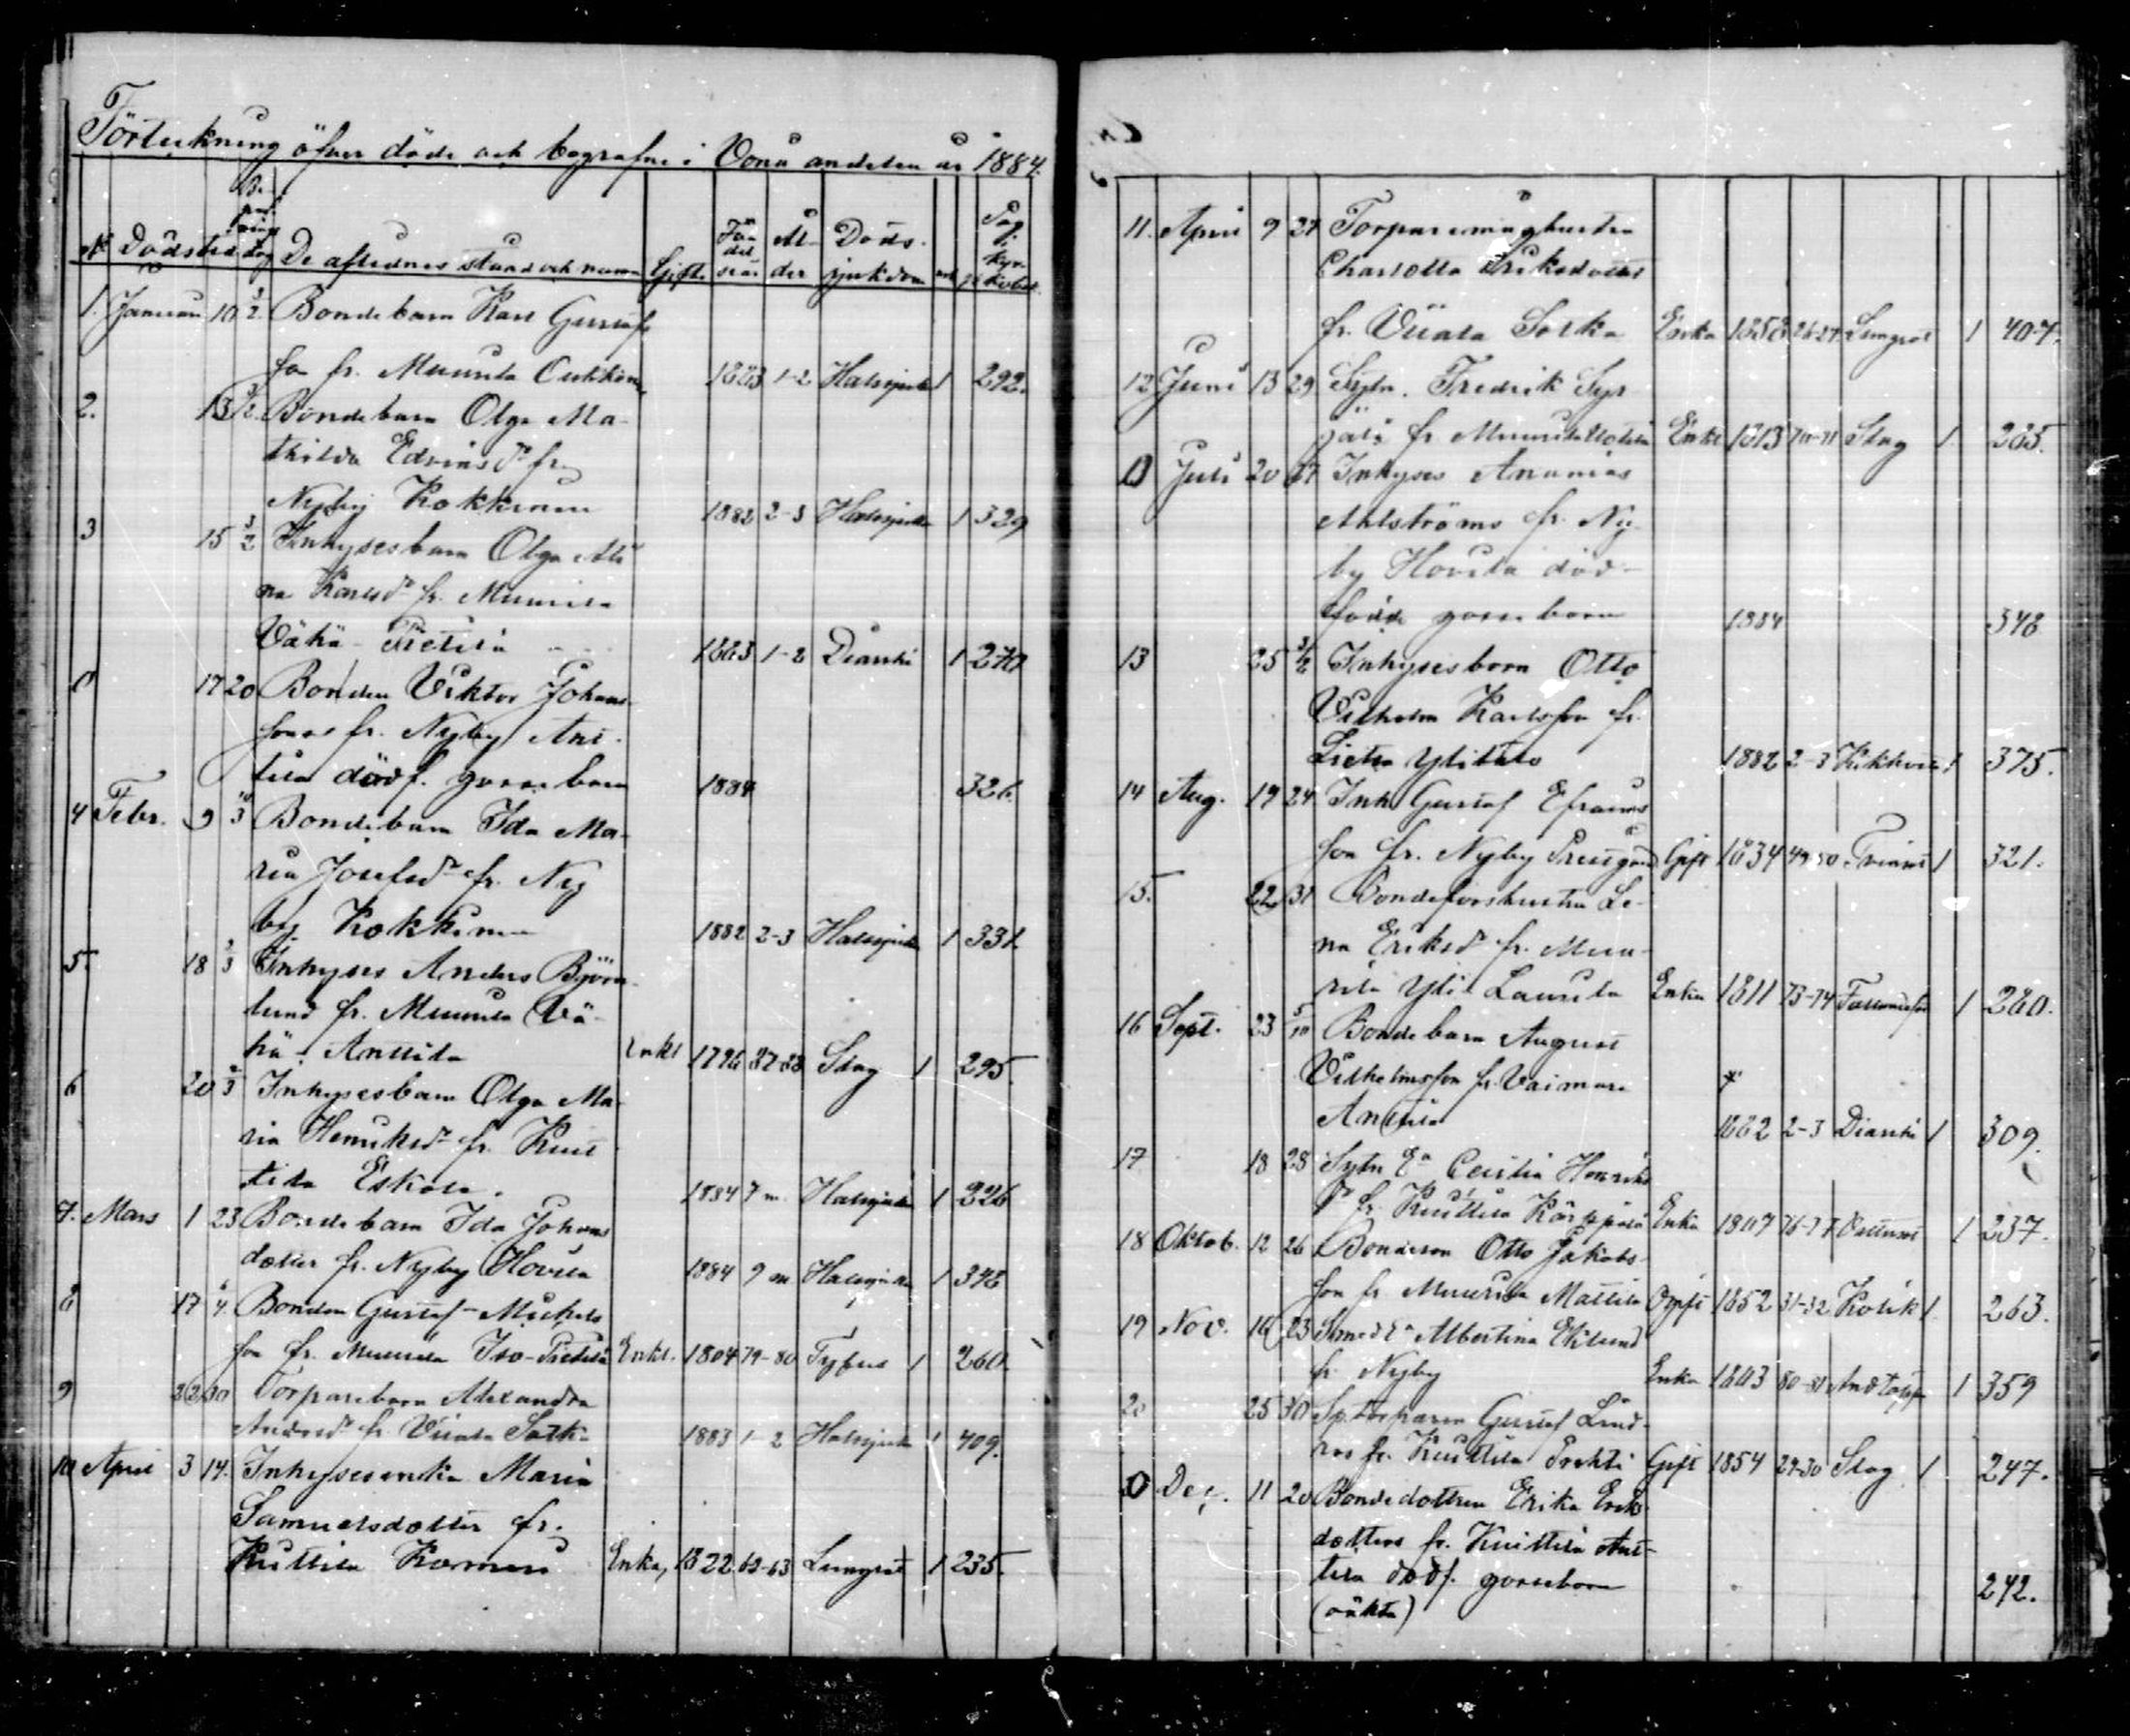 Förteckning öfver döde och begrafne i Vonå andelen år 1884.
№ Dödstid Begrafningsdag De aflednes stånd och namn Gift. Födelseår Ålder Dödssjukdom Pag. i kyrkobok.
1. Januari 10 1/2 Bondebarn Karl Gustafs
son fr. Muurila 1883 1-2 Halssjuka 1 292.
2. 13 Bondebarn Olga Ma-
thilda Edvinsdr fr.
Nyby Kokkinen 1882 2-3 Halssjuka 1 329
3 15 3/2 Inhysesbarn Olga Ali
na Karlsdr fr. Muurila
Vähä-Pietilä 1883 1-2 1
0 17 20 Bonden Viktor Johans-
sons fr. Nyby Ant-
tila dödf. gossebarn 1884 326.
4 Febr. 9 Bondebarn Ida Ma-
ria Josefsdr fr. Ny
by Kokkinen 1882 2-3 Halssjuka 1 331.
5. 18 2/3 Inhyses Anders Björk-
lund fr. Muurila Vä-
hä-Anttila Enkl 1796 87-88 Slag 1 295.
6 20 2/3 Inhysesbarn Olga Ma-
ria Henriksdr fr. Kuit
tila Eskola. 1884 7 m. Halssjuka 1 226
7. Mars 1 23 Bondebarn Ida Johans
dotter fr. Nyby Hovila 1884 9 m Halssjuka 1 348
8 17 6/4. Bonden Gustaf Michels
son fr. Muurila Iso-Pietilä Enkl. 1804 79-80 Typhus 1 260.
9 22 30 Torparebarn Alexandra
Andersdr fr. Viiala Sotka 1883 1-2 Halssjuka 1 409.
10 April 3 14. Inhysesenka Maria
Samuelsdotter fr.
Kuittila Enka, 1822 62-63 Lungsot 1 235.
11. April 9 27 Torparemåghustru
Charlotta Eriksdotter
fr. Viiala Sotka Enka 1858 26-27 Lungsot 1 407.
12 Juni 13 29 Sytn. Fredrik Syr
jälä fr Muurila Enkl 1813 70-71 Slag 1 285.
0 Juli 20 27 Inhyses Ananias
Ahlströms fr. Ny
by Hovila död-
födde gossebarn 1884 348
13 25 3/2 Inhysesbarn Otto
Vilhelm Karlsson fr.
Lietsa Ylitalo 1882 2-3 Kikhosta 1 375.
14 Aug. 19 24 Inh Gustaf Efraims
son fr. Nyby Prestgård Gift 1834 49-50 1 321.
15. 22 31 Bondeforshustru Le-
na Eriksdr fr. Muu-
rila Yli-Laurila Enka 1811 73-74 1 280.
16 Sept. 23 5/10 Bondebarn August
Vilhelmsson fr. Vaimare
Anttila 1882 2-3 1 309.
17 18 28 Sytn Ea Cecilia Henriks
dr fr. Kuittila Kärppälä Enka 1807 76-77 Vattusot 1 237.
18 Oktob. 12 26 Bondeson Otto Jakobs-
son fr. Muurila Mattila Ogift 1852 31-32 Kolik 1 263.
19 Nov. 16 23 Smeds Ea Albertina Eklund
fr. Nyby Enka 1803 80-81 Andtäppa 1 359
20 25 30 Sp. torparen Gustaf Lind-
ros fr. Kuittila Prehti Gift 1854 29-30 Slag 1 247.
0 Dec. 11 20 Bondedottren Erika Eriks
dotters fr. Kuittila Ant-
tila dödf. gossebarn 242.
(oäkta)